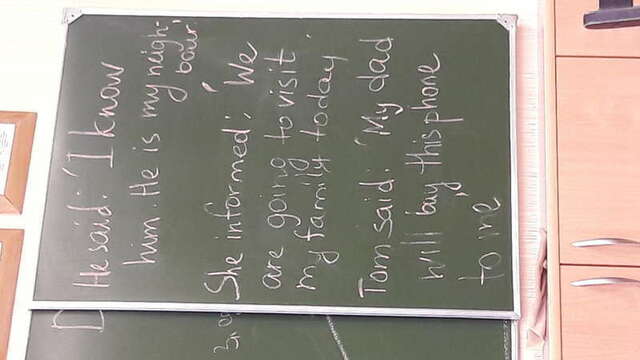 He said: 'I know
him. He is my neigh-
bour'
She informed: 'We
are going to visit
my family today'
Tom said: 'My dad
will buy this phone
to me'